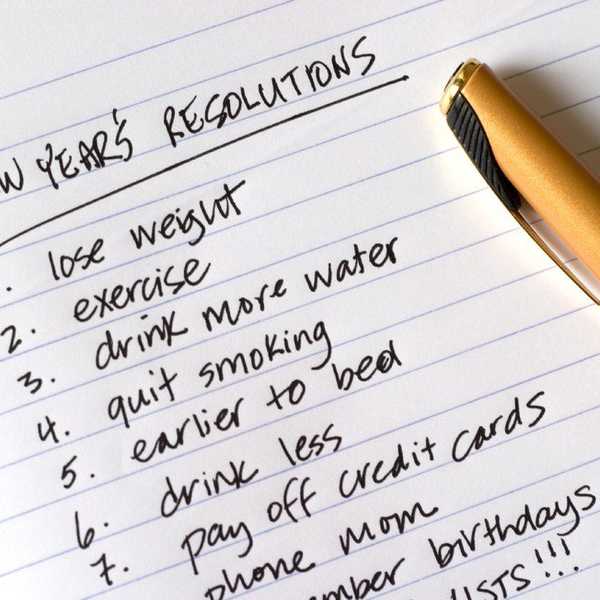 W YEAR'S RESOLUTIONS
. lose weight
2. exercise
3. drink more water
4. quit smoking
5. earlier to bed
6. drink less
7. pay off credit cards
phone mom
birthdays